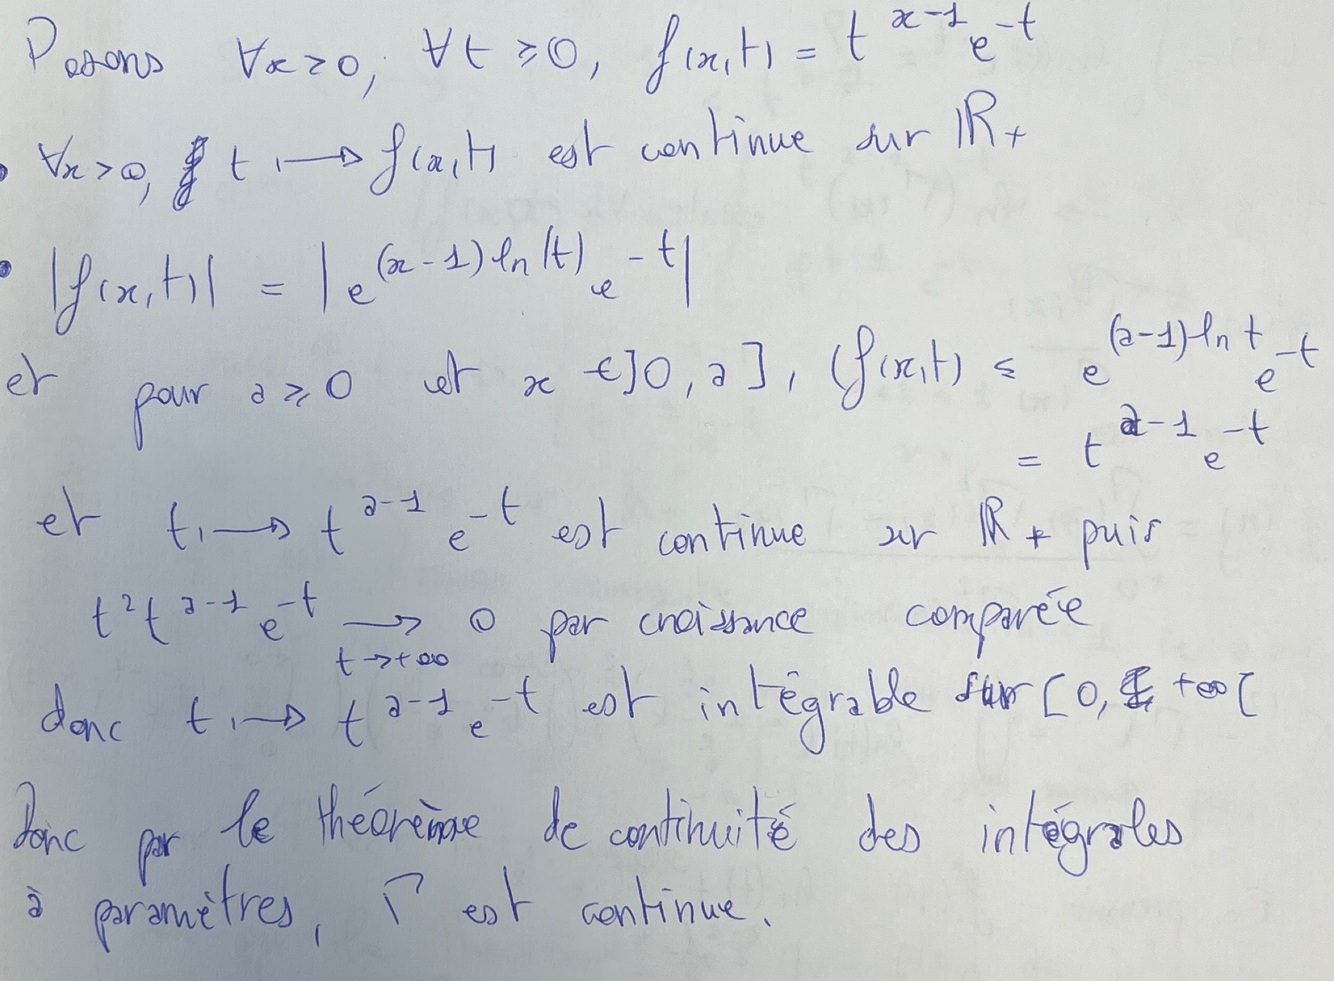 Posons ∀x≥0, ∀t ≥0, f(x,t) = t^{x-1} e^{-t}
• ∀x>0, t ↦ f(x,t) est continue sur ℝ+
• |f(x,t)| = |e^{(x-1) ln(t)} e^{-t}|
et pour a ≥ 0 et x ∈ ]0, a], |f(x,t) ≤ e^{(a-1) ln t} e^{-t}
= t^{a-1} e^{-t}
et t ↦ t^{a-1} e^{-t} est continue sur ℝ+ puis
t² t^{a-1} e^{-t} → 0 par croissance comparée
t→+∞
donc t ↦ t^{a-1} e^{-t} est intégrable sur [0, +∞[
Donc par le théorème de continuité des intégrales
à paramètres, Γ est continue.